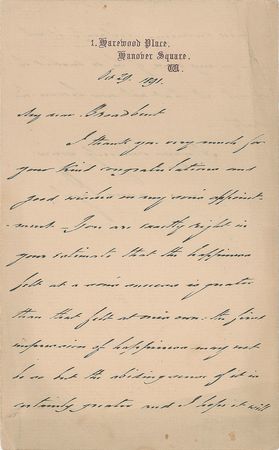 1. Harewood Place,
Hanover Square,
W.
Oct 29. 1891.
My dear Broadbent
I thank you very much for
your kind congratulations and
good wishes on my son's appoint-
ment. You are exactly right in
your estimate that the happiness
felt at a son's success is greater
than that felt at one's own: the first
impression of happiness may not
be so but the abiding sense of it is
certainly greater and I hope it will